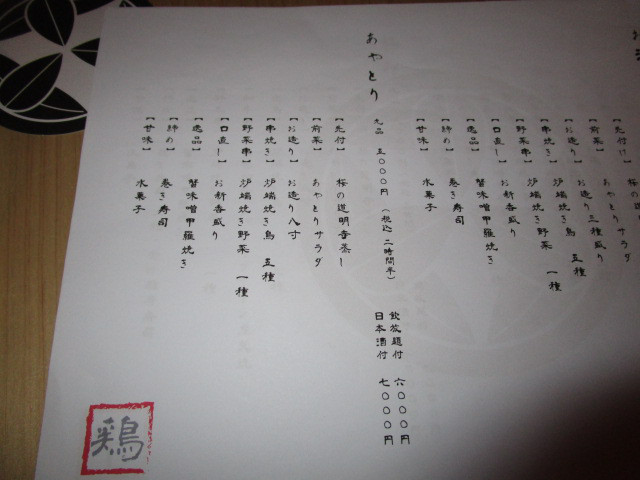 【先付け】
【前菜】 あやとりサラダ
【お造り】 お造り三種盛り
【串焼き】 炉端焼き鳥 五種
【野菜串】 炉端焼き野菜 一種
【口直し】 お新香盛り
【逸品】 蟹味噌甲羅焼き
【締め】 巻き寿司
【甘味】 水菓子
あやとり 九品 五〇〇〇円 (税込 二時間半) 飲放題付 六〇〇〇円
日本酒付 七〇〇〇円
【先付】 桜の道明寺蒸し
【前菜】 あやとりサラダ
【お造り】 お造り八寸
【串焼き】 炉端焼き鳥 五種
【野菜串】 炉端焼き野菜 一種
【口直し】 お新香盛り
【逸品】 蟹味噌甲羅焼き
【締め】 巻き寿司
【甘味】 水菓子
鶏